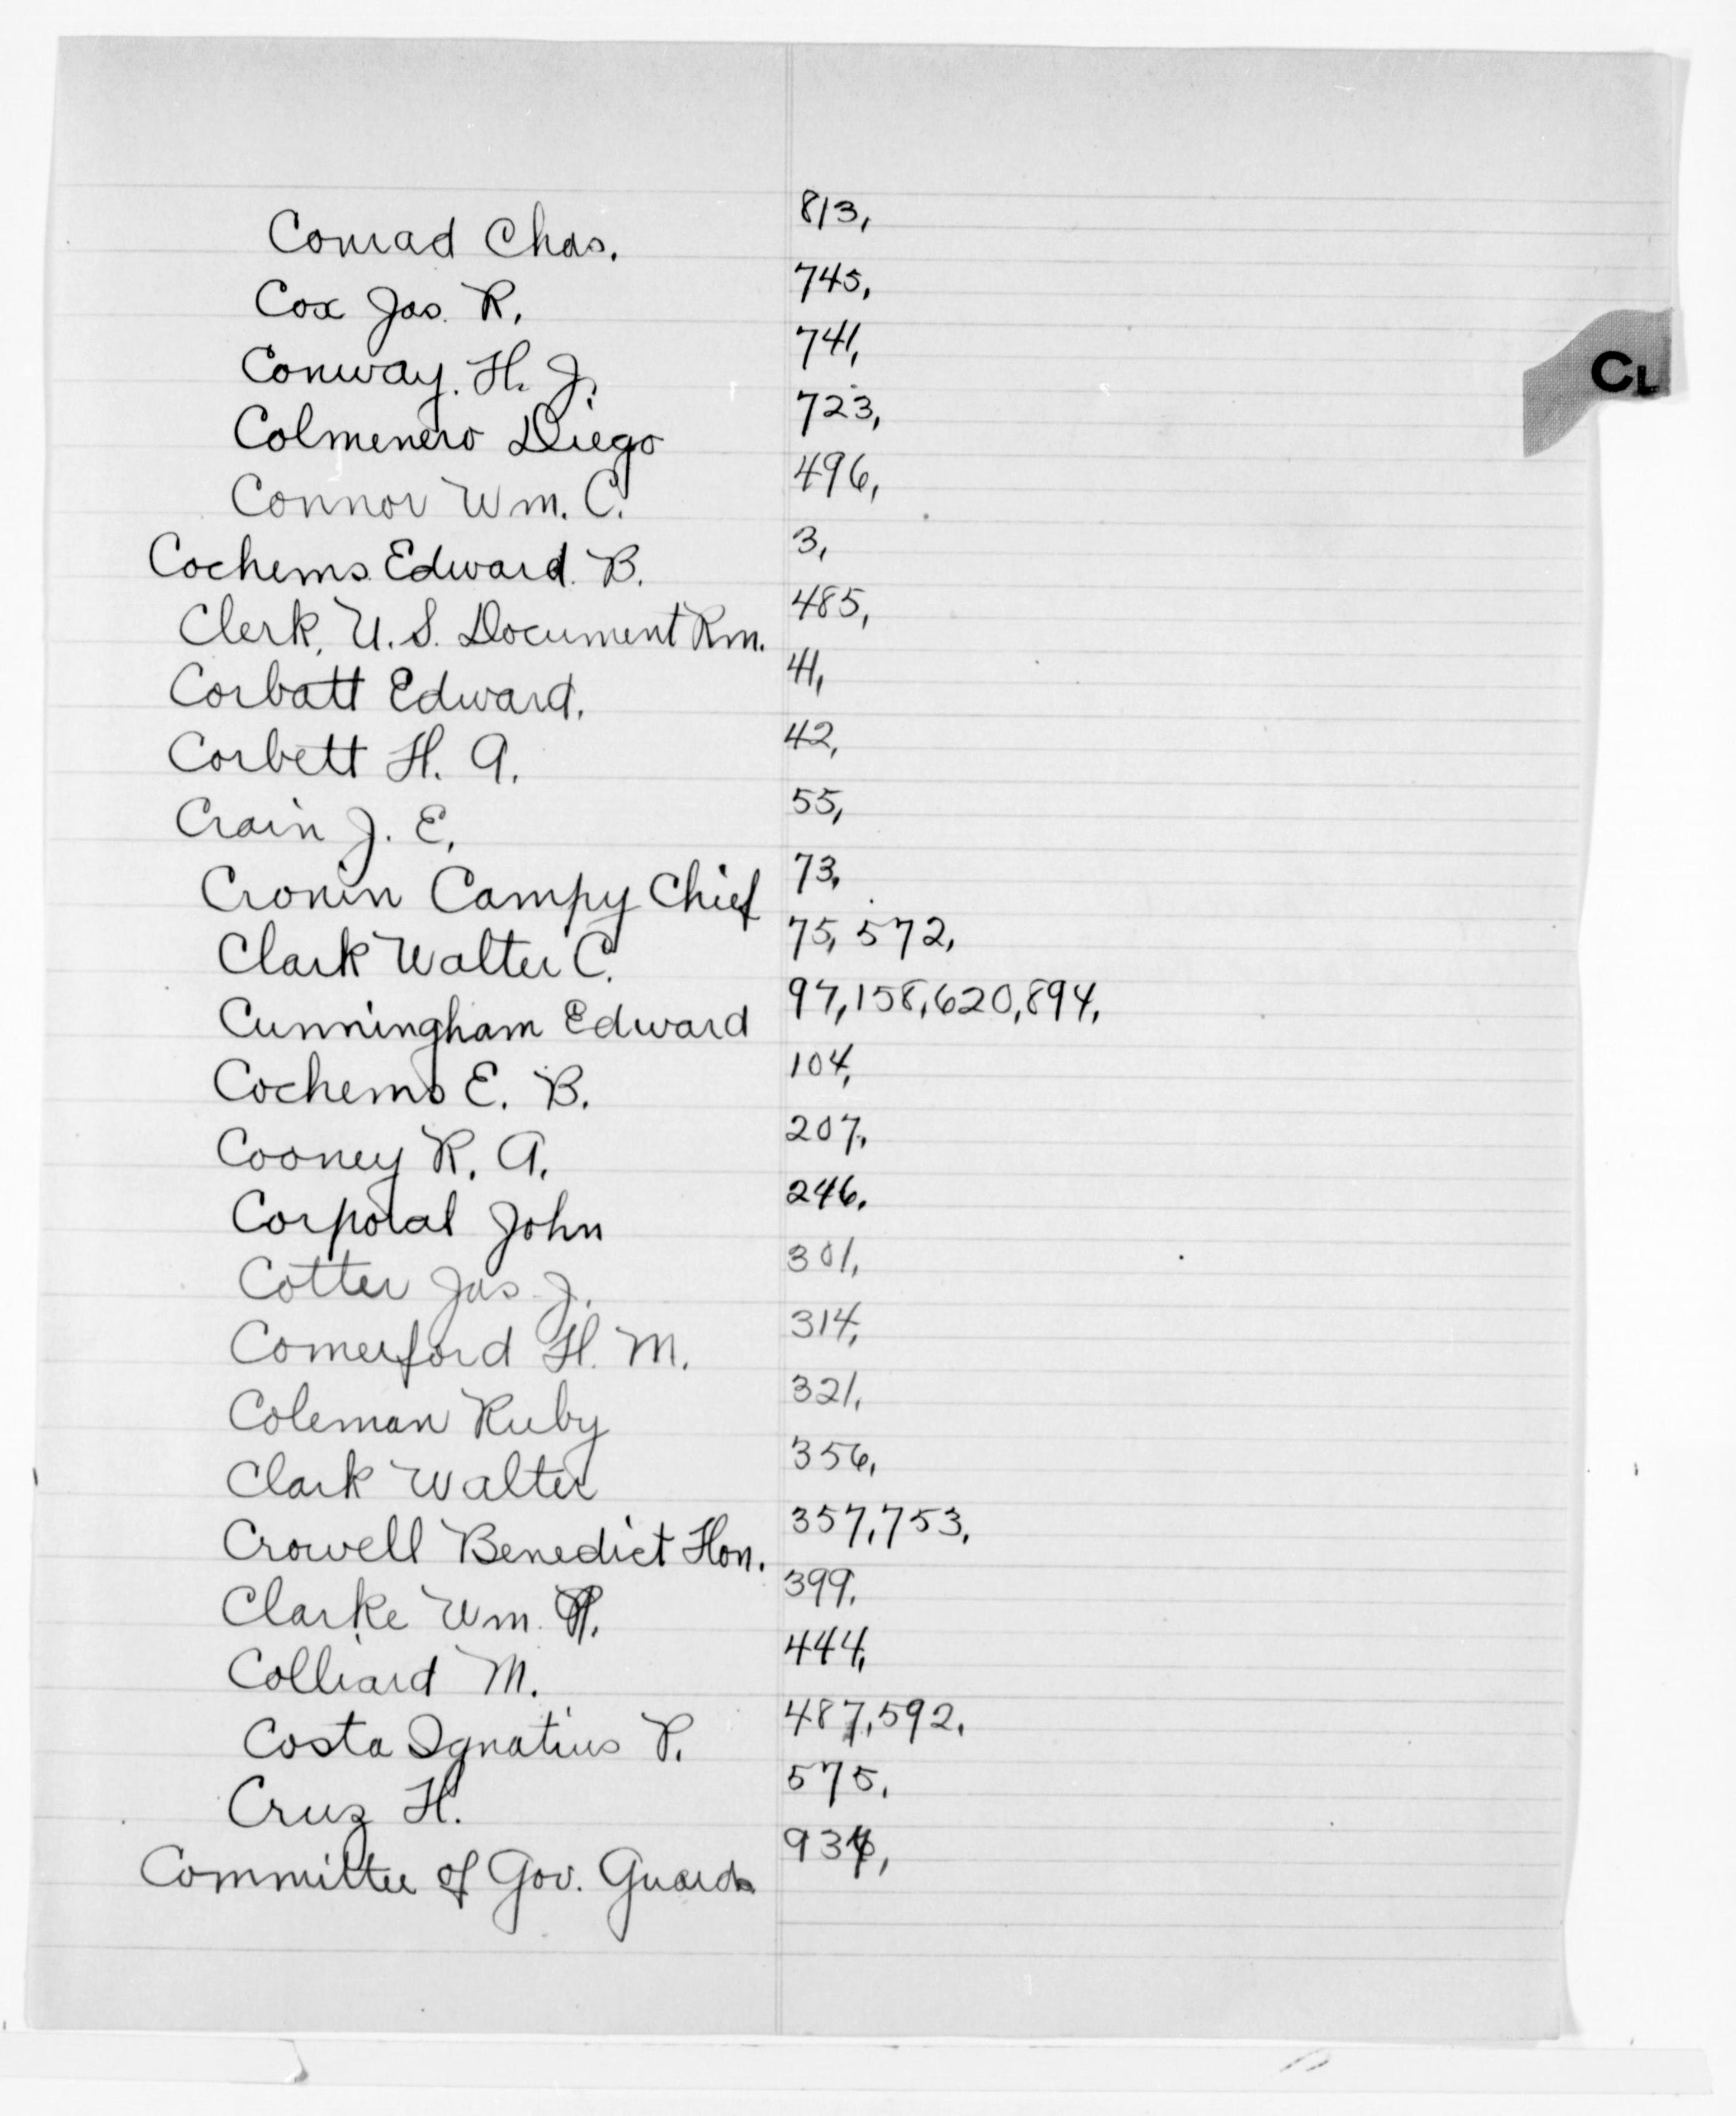 Conrad Chas. 813,
Cox Jas. R. 745,
Conway. H. J. 741,
CL
Colmenero Diego 723,
Connor Wm. C. 496,
Cochems Edward. B. 3,
Clerk, U.S. Document Rm. 485,
Corbatt Edward. 41,
Corbett H. A. 42,
Crain J. E. 55,
Cronin Campy Chief 73,
Clark Walter C. 75, 572,
Cunningham Edward 97,158,620,894,
Cochems E. B. 104,
Cooney R. A. 207,
Corporal John 246,
Cotter Jas. J. 301,
Comerford H. M. 314,
Coleman Ruby 321,
Clark Walter 356,
Crowell Benedict Hon. 357,753,
Clarke Wm. 399,
Colliard M. 444,
Costa Ignatius P. 487,592,
Cruz H. 575,
Committee of Gov. Guards